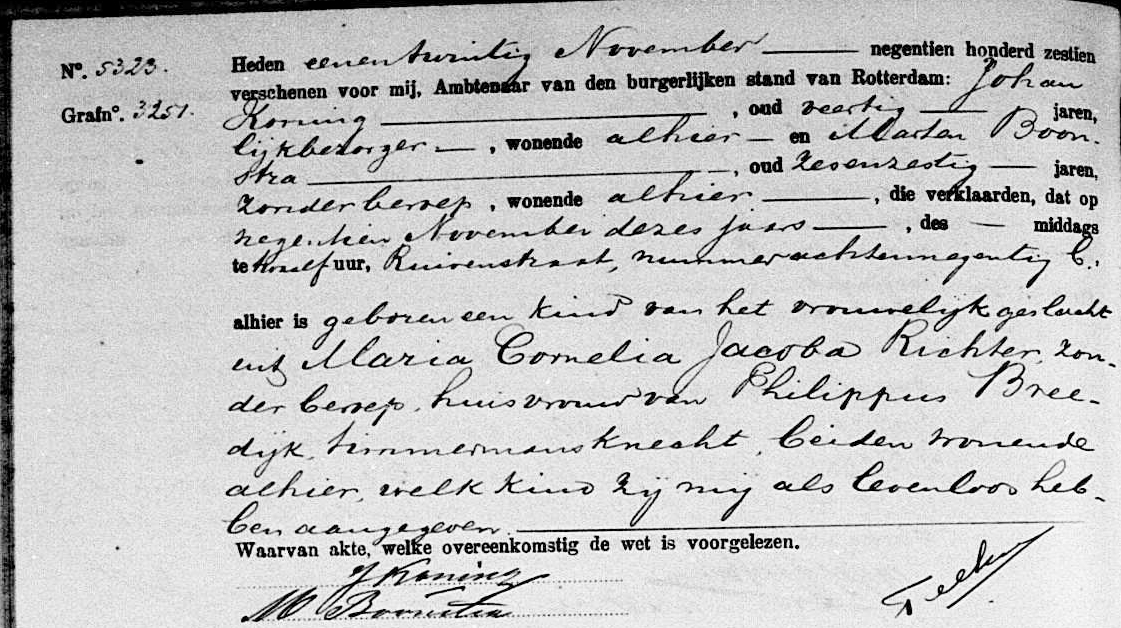 Nº. 5323. Heden eenentwintig November negentien honderd zestien
verschenen voor mij, Ambtenaar van den burgerlijken stand van Rotterdam: Johan
Grafnº. 3251. Koning, oud veertig jaren,
lijkbezorger, wonende alhier en Marten Boon-
stra, oud zesenzestig jaren,
zonder beroep, wonende alhier, die verklaarden, dat op
negentien November dezes jaars, des — middags
te twaalf uur, Ruivenstraat, nummer achtennegentig b.,
alhier is geboren een kind van het vrouwelijk geslacht
uit Maria Cornelia Jacoba Richter, zon-
der beroep, huisvrouw van Philippus Bree-
dijk, timmermansknecht, beiden wonende
alhier, welk kind zij mij als levenloos heb-
ben aangegeven.
Waarvan akte, welke overeenkomstig de wet is voorgelezen.
J Koning
M Boonstra